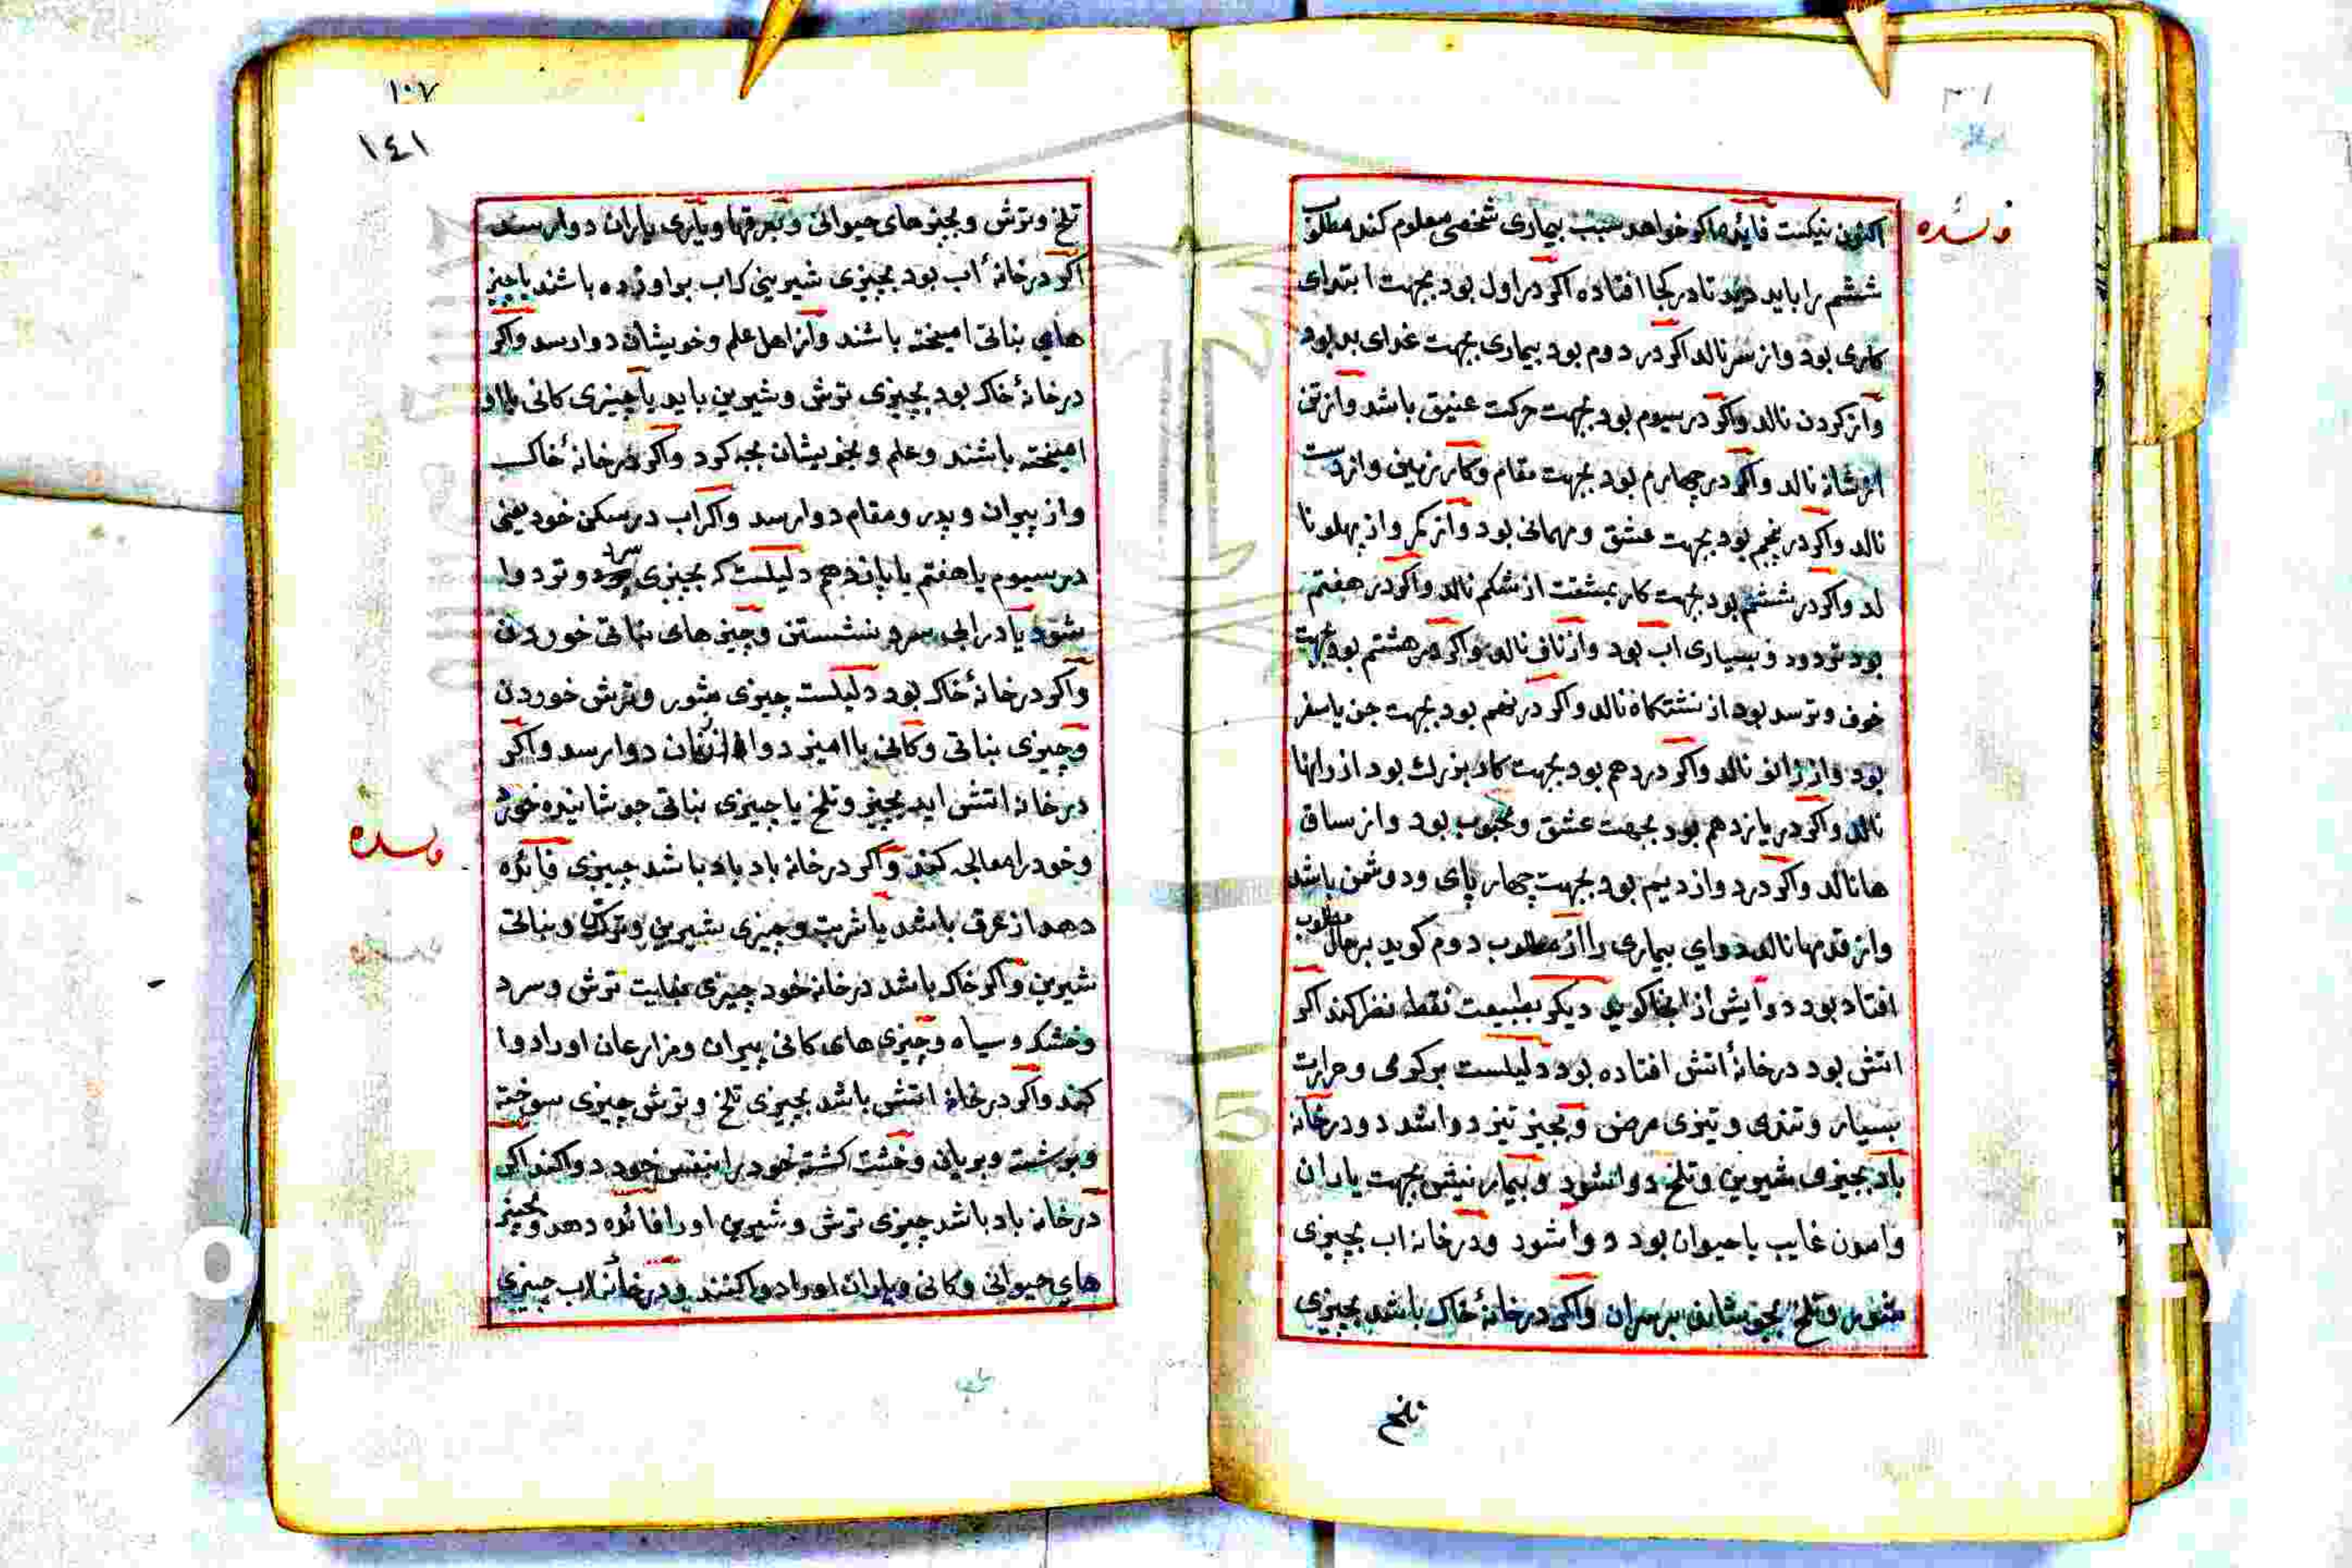 فائده
اکنون نیکست فائده اکر خواهد سبب بیماری شخصی معلوم کند مطلوب
ششم را باید دید تا در کجا افتاده اکر در اول بود بجهت ابتدای
کاری بود واز سر نالد اکر در دوم بود بیماری بجهت غدای بد بود
واز کردن نالد واکر در سیوم بود بجهت حرکت عنیق باشد واز تن
از شانه نالد واکر در چهارم بود بجهت مقام وکار زمین واز دست
نالد واکر در پنجم بود بجهت عشق و مهمانی بود واز کمر واز پهلو نا
لد واکر در ششم بود بجهت کار بمشقت از شکم نالد واکر در هفتم
بود تردود و بسیاری اب بود واز ناف نالد واکر در هشتم بود بجهت
خوف و ترسد بود از نشتکاه نالد واکر در نهم بود بجهت جن یا سفر
بود واز زانو نالد واکر در دهم بود بجهت کار بزرك بود از رانها
نالد واکر در یازدهم بود بجهت عشق ومحبوب بود واز ساق
ها نالد واکر در دوازدیم بود بجهت چهار پای ودوشمن باشد
واز قدمها نالد دوای بیماری را از مطلوب دوم کوید بر حال مطلوب
افتاد بود دوایش از انجا کوید دیکر بطبیعت نقطه نظر کند اکر
اتش بود در خانۀ اتش افتاده بود دلیلست بر کرمی وحرارت
بسیار وتندی وتیزی مرض وبچیز تیز دوا شد ودر خانه
باد بچیزی شیرین وتلخ دوا شود وبیماریش بجهت یاران
وامدن غایب یا حیوان بود دوا شود ودر خانه اب بچیزی
شور وتلخ بخویشان برسران واکر در خانۀ خاک باشد بچیزی
تلخ
١٠٧
١٤١
تلخ وترش وبچیزهای حیوانی وبعرقها ویاری یاران دوا رسد
اکر در خانۀ اب بود بچیزی شیرینی کاب براورده باشند یا چیز
های بناتی امیخته باشند واز اهل علم وخویشان دوا رسد واکر
در خانۀ خاک بود بچیزی ترش وشیرین باید یا چیزی کانی
امیخته باشند وعلم وبخویشان کرد واکر در خانۀ خاک
واز پیران وپدر ومقام دوا رسد واکر اب در سکن خود یعنی
در سیوم یا هفتم یا پانزدهم دلیلست که بچیزی سرد وتر دوا
شود یا در ابی سرد نشستن وچیزهای نباتی خوردن
واکر در خانۀ خاک بود دلیلست چیزی شور وترش خوردن
وچیزی بناتی وکانی با امیز دوا از زنان دوا رسد واکر
در خانه اتش اید بچیز وتلخ یا چیزی بناتی جوشانیده خورد
وخود را معالجه کند واکر در خانه باد باد باشد چیزی فائده
فائده
دهد از عرق باشد یا شربت وچیزی شیرین وبناتی
شیرین واکر خاک باشد در خانه خود چیزی بغایت ترش وسرد
وخشک وسیاه وچیزی های کانی پیران ومزارعان اورا دوا
کند واکر در خانه اتش باشد بچیزی تلخ وترش چیزی سوخته
وبرشته وبریان وخشت کشته خود را بنفس خود دوا کند اکر
در خانه باد باشد چیزی ترش وشیرین اورا فائده دهد وبچیز
های حیوانی وکانی ویاران اورا دوا کنند ودر خانۀ اب چیزی